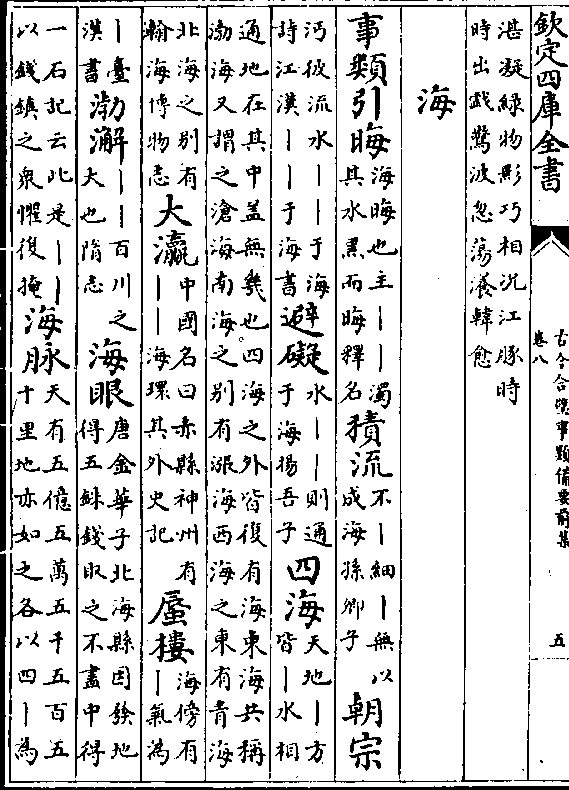 欽定四庫全書
古今合璧事類備要前集
卷八
五
湛凝綠物影巧相況江豚時
時出戲驚波忽蕩瀁韓愈
海
事類引晦海晦也主丨丨濁其水黑而晦釋名積流不丨細丨無以成海孫卿子朝宗
沔彼流水丨丨于海詩江漢丨丨于海書避礙水丨丨則通于海揚吾子四海天地丨方皆丨水相
通地在其中蓋無幾也四海之外皆復有海東海共稱
渤海又謂之滄海南海之别有漲海西海之東有青海
北海之别有瀚海博物志大瀛中國名曰赤縣神州有丨丨海環其外史記蜃樓海傍有丨氣為
丨臺漢書渤澥丨丨百川之大也隋志海眼唐金華子北海縣因發地得五銖錢取之不盡中得
一石記云此是丨丨以錢鎮之衆懼復掩海脉天有五億五萬五千五百五十里地亦如之各以四丨為